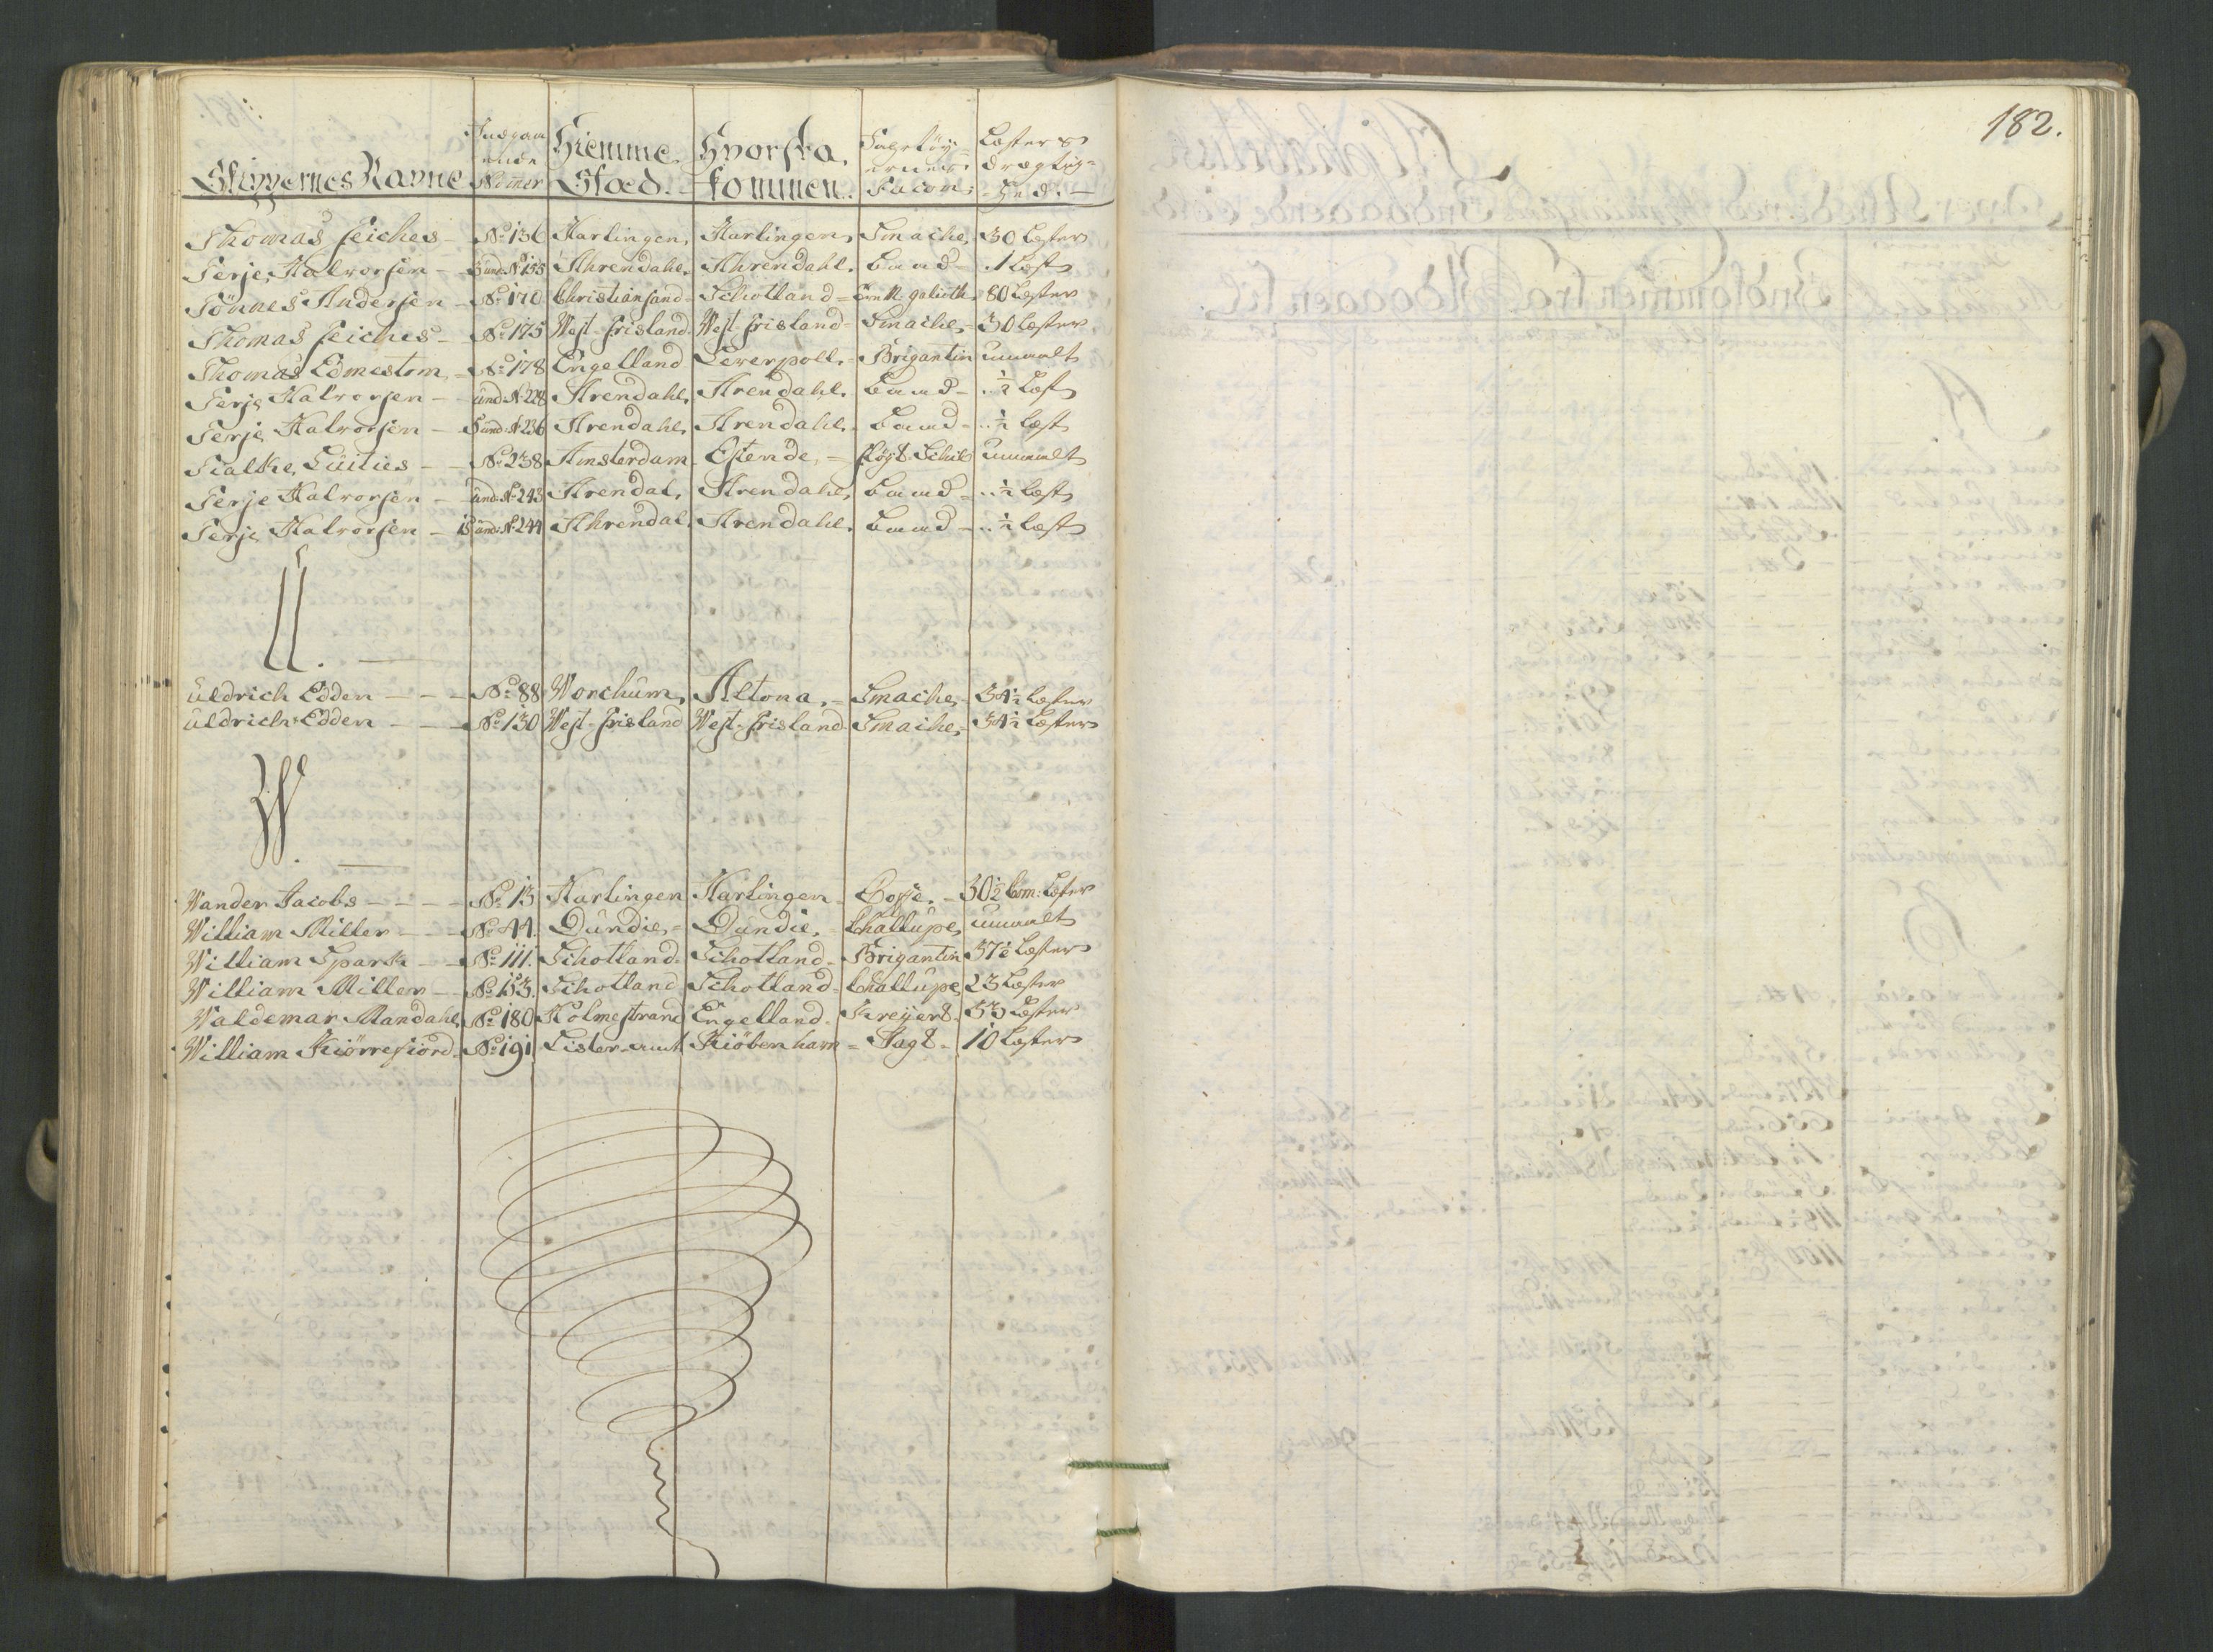 182.
Skippernes Navne Indgaaende Nommer Hiemme Stæd. Hvorfra kommen. Fartöyernes Facon; Læsters drægtighed. —
Thomas Feiches — No 136 Harlingen, Harlingen, Smacke, 30 Læster
Terje Halvorsen — No 155 Ahrendahl. Ahrendahl. Baad — 1 Læst
Tönnes Andersen — No 170 Christiansand Schotland = galioth. 80 Læster
Thomas Feiches — No 175 West-frisland West-frisland = Smacke, = 30 Læster
Thomas Edmestom, = No 178 Engelland Leverpoll. = Brigantin umaalt
Terje Halvorsen — und: No 228 Arendahl, Arendahl. Baad — .. ½ Læst
Terje Halvorsen — und: No 236 Arendahl, Arendahl. Baad = .. ½ Læst
Tialke Luities — — No 238 Amsterdam Ostende, = Schib umaalt
Terje Halvorsen — und: No 243 Arendal, Arendahl, Baad = .. ½ Læst
Terje Halvorsen — und: No 244 Ahrendal. Arendahl. Baad — .. ½ Læst
U. —
Uldrich Edden — — — No 88 Worchum, Altona, = Smacke, = 34½ Læster
Uldrich Edden — — — No 130 West-frisland West-frisland Smacke, = 34½ Læster
W. —
Wander Jacobs — — — — No 13 Harlingen Harlingen = Bojje. — 30½ Com: Læster
William Miller — — No 44. Dundie, = Dundie, = Challupe, umaalt
William Spark — — No 111. Schotland. Schotland. Brigantin 37½ Læster
William Miller — No 153. Schotland Schotland = Challupe, 23 Læster
Waldemar Mandahl, No 180 Holmestrand Engelland. Kreyert. 53 Læster
William Kiörrefiord. No 191 Lister-amt Kiöbenhavn = Jagt = 10 Læster